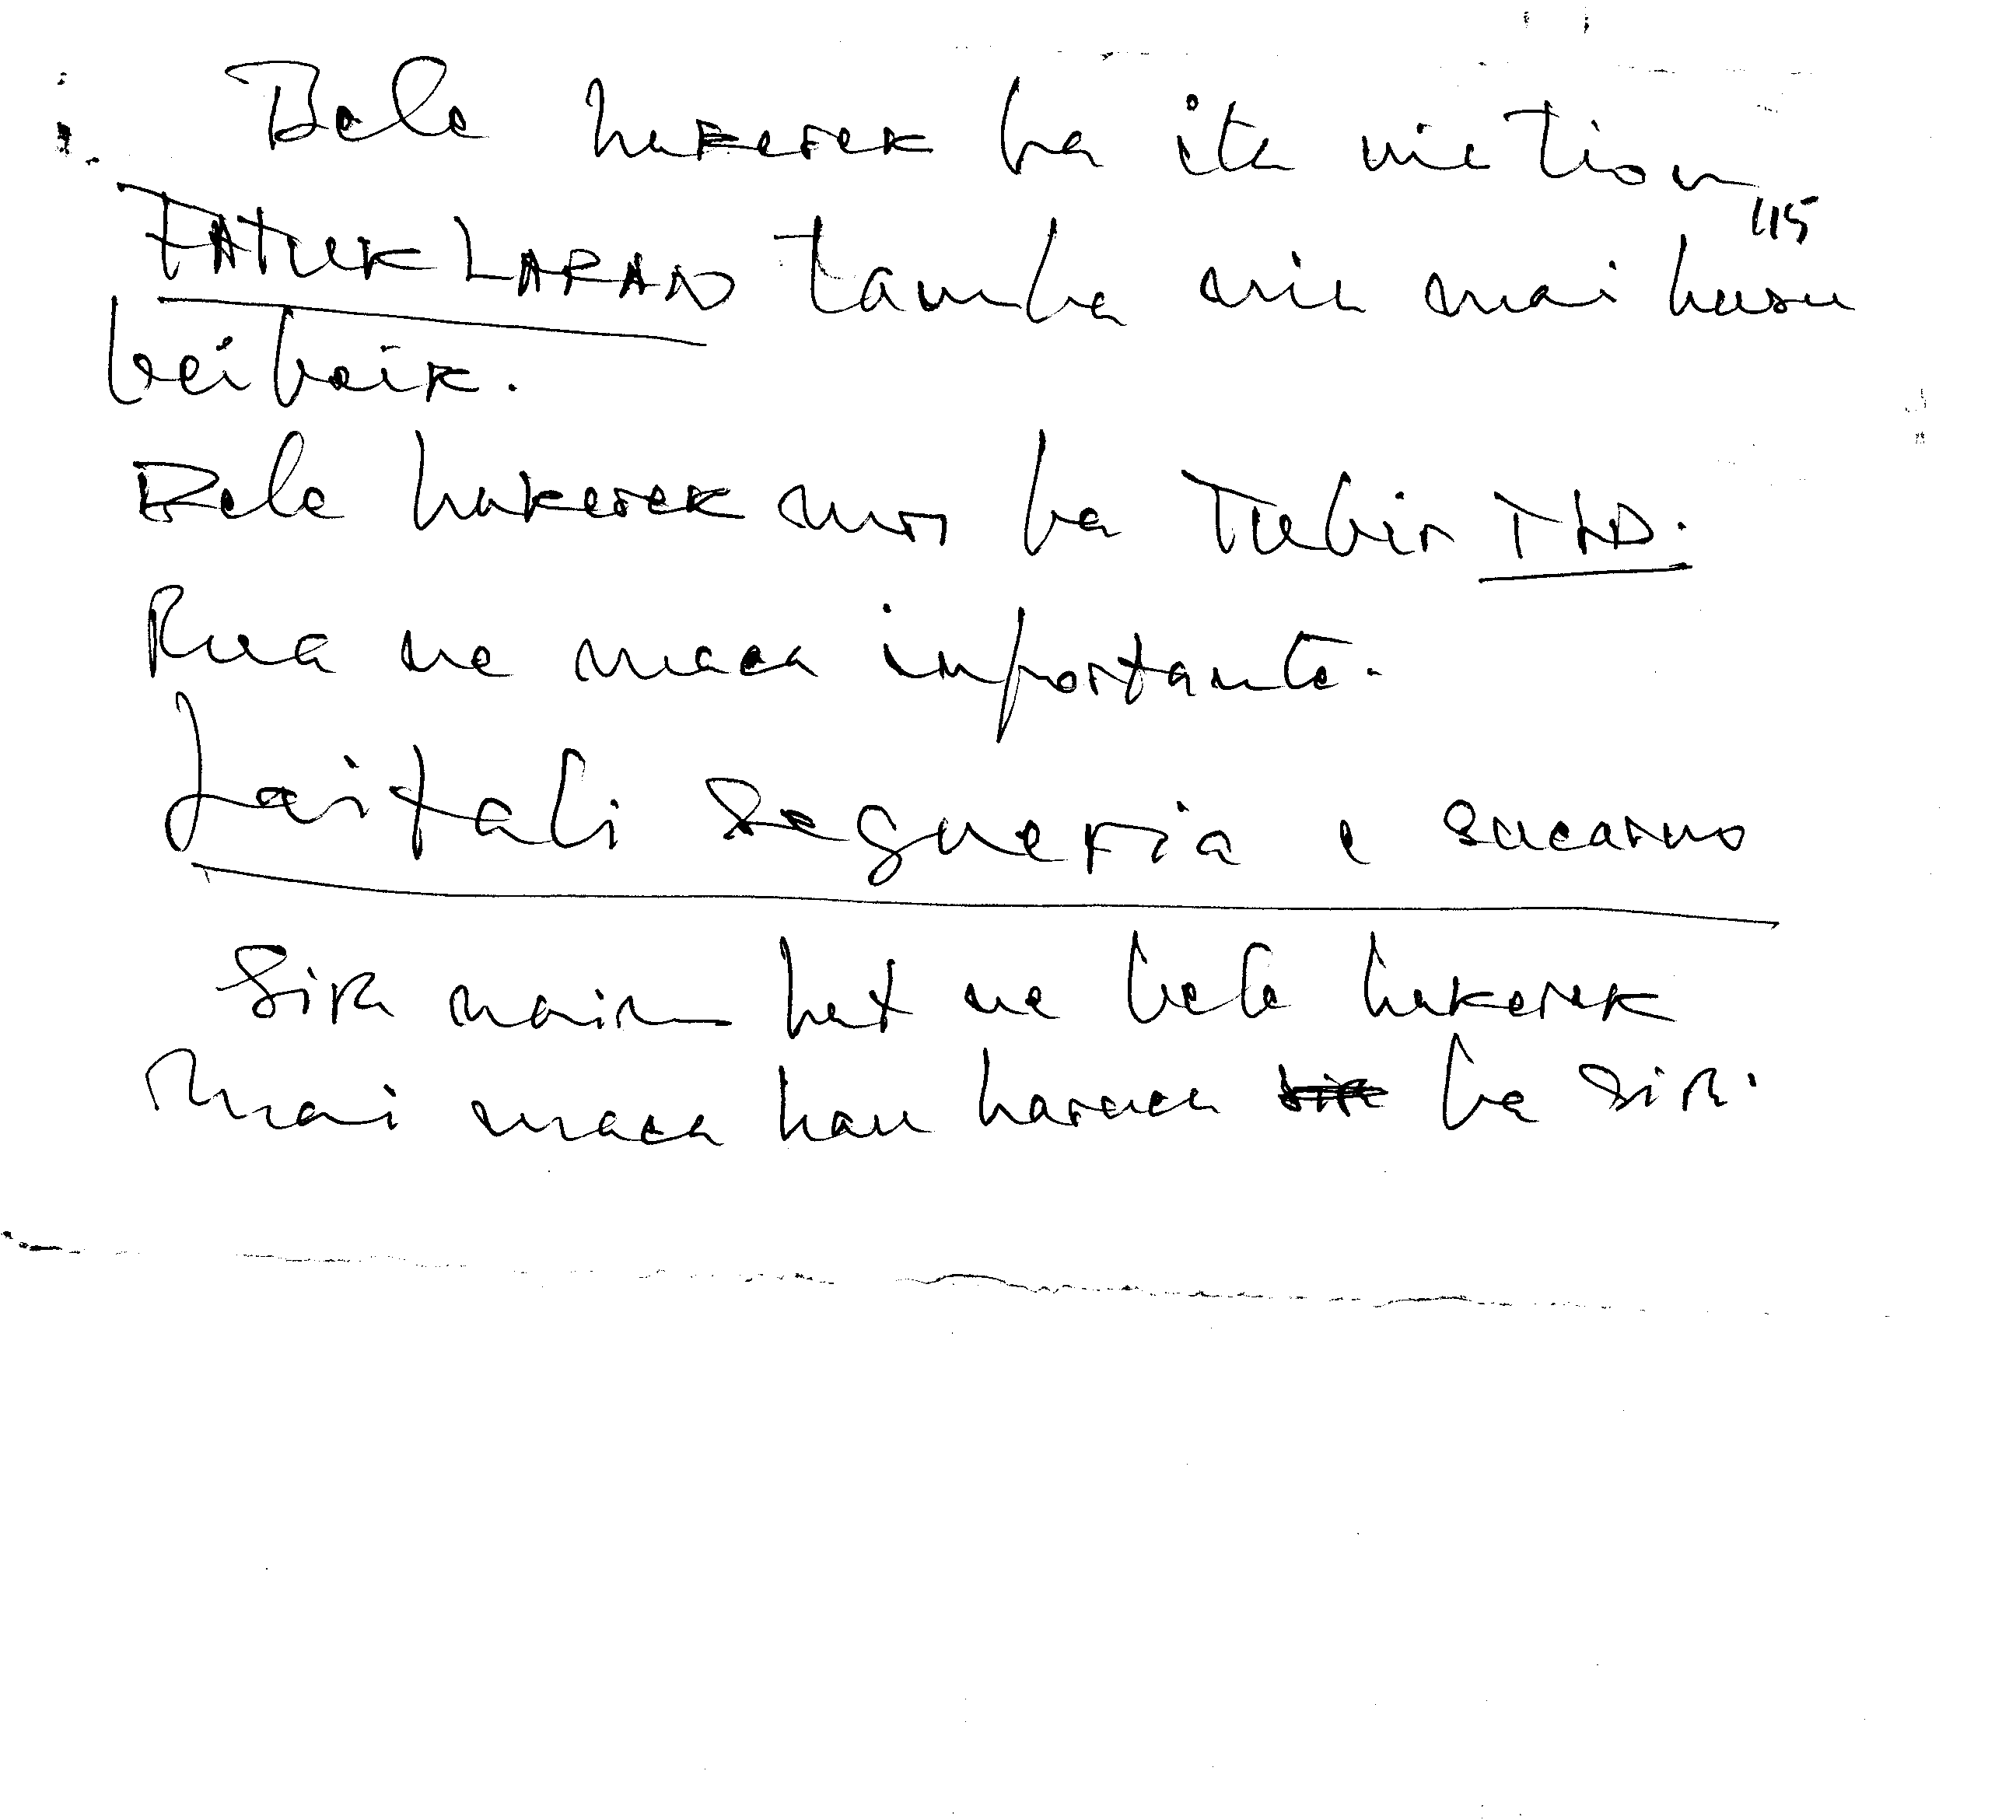 Bele hakerek ba ita nie tion
115
FATUK LARAN tamba nia mai husu
beibeik.
Bele hakerek mos ba Tubir TLD.
Rua ne maca importante.
Laitali Segueria e sucarno
Sira nain hat ne bele hakerek
mai maca hau haruca ba sira.